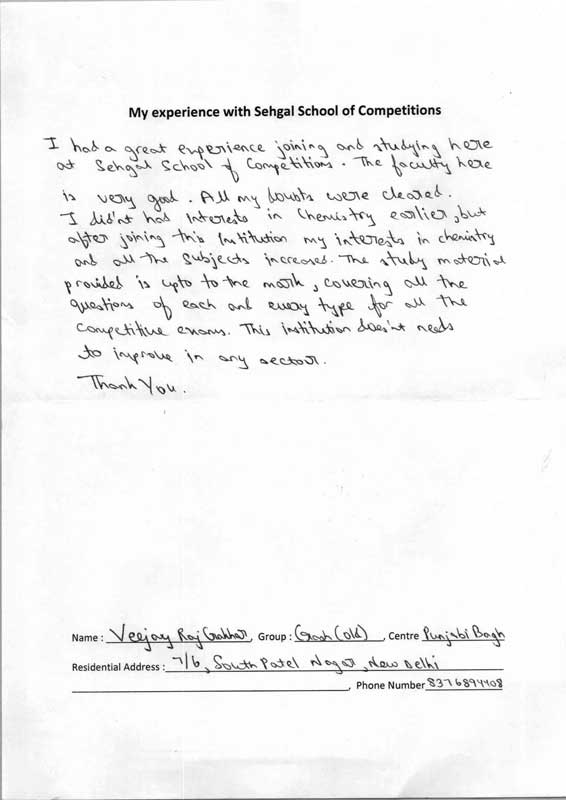 My experience with Sehgal School of Competitions
I had a great experience joining and studying here
at Sehgal School of Competitions. The faculty here
is very good. All my doubts were cleared.
I did'nt had Interests in Chemistry earlier, but
after joining this Institution my interests in chemistry
and all the subjects increased. The study material
provided is upto to the mark, covering all the
questions of each and every type for all the
Competitive exams. This institution does'nt needs
to improve in any sector.
Thank You.
Name : Veejay Raj Group : (old), Centre Punjabi Bagh
Residential Address : 7/6, South Patel Nagar, New Delhi
, Phone Number 8376894408